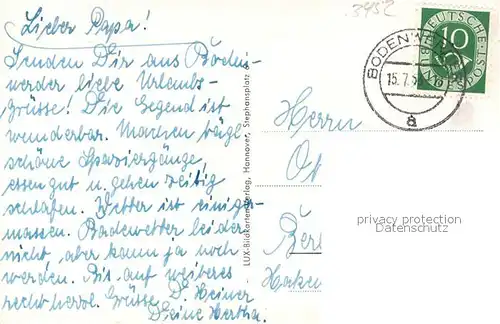 3452
Lieber Papa!
Senden Dir aus Boden-
werder liebe Urlaubs-
grüsse! Die Gegend ist
wunderbar. Machen tägl.
schöne Spaziergänge,
essen gut u. gehen zeitig
schlafen. Wetter ist einiger-
massen. Badewetter leider
nicht, aber kann ja noch
werden. Bis auf weiteres
recht herzl. Grüsse D. Heiner
Deine Hertha.
LUX-Bildkartenverlag, Hannover, Stephansplatz
DEUTSCHE POST
10
BODENWERDER
15.7.5
a
Herrn
privacy protection
Datenschutz